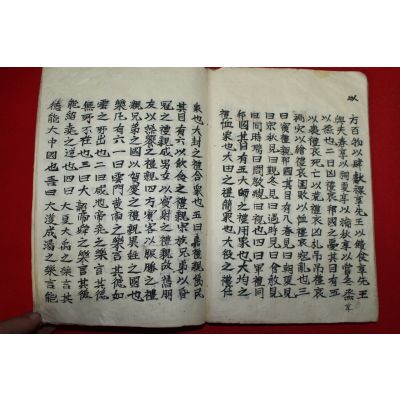 方百物以肆獻祼享先王以饋食享先王
以祠春享以禴夏享以嘗秋享以烝
冬二曰凶禮哀邦國之憂其目有五
以喪禮哀死亡以荒禮哀凶札以吊禮哀
禍災以禬禮哀圍敗以恤禮哀寇亂也三
曰賓禮親邦國其目有八春見曰朝夏見
曰宗秋見曰覲冬見曰遇時見曰會殷見
曰同時聘曰問殷覜曰視也四曰軍禮同
邦國其目有五大師之禮用眾也大均之
禮恤眾也大田之禮簡眾也大役之禮任
眾也大封之禮合眾也五曰嘉禮親萬民
其目有六以飲食之禮親宗族兄弟以昏
冠之禮親成男女以賓射之禮親故舊朋
友以饗燕之禮親四方賓客以脤膰之禮
親兄弟之國以賀慶之禮親異姓之國也
樂凡有六一曰雲門黃帝之樂言其德如
雲之所出也二曰咸池帝堯之樂言其德
無所不在也三曰大韶帝舜之樂言其德
能紹堯之道也四曰大夏大禹之樂言其
德能大中國也五曰大濩成湯之樂言能